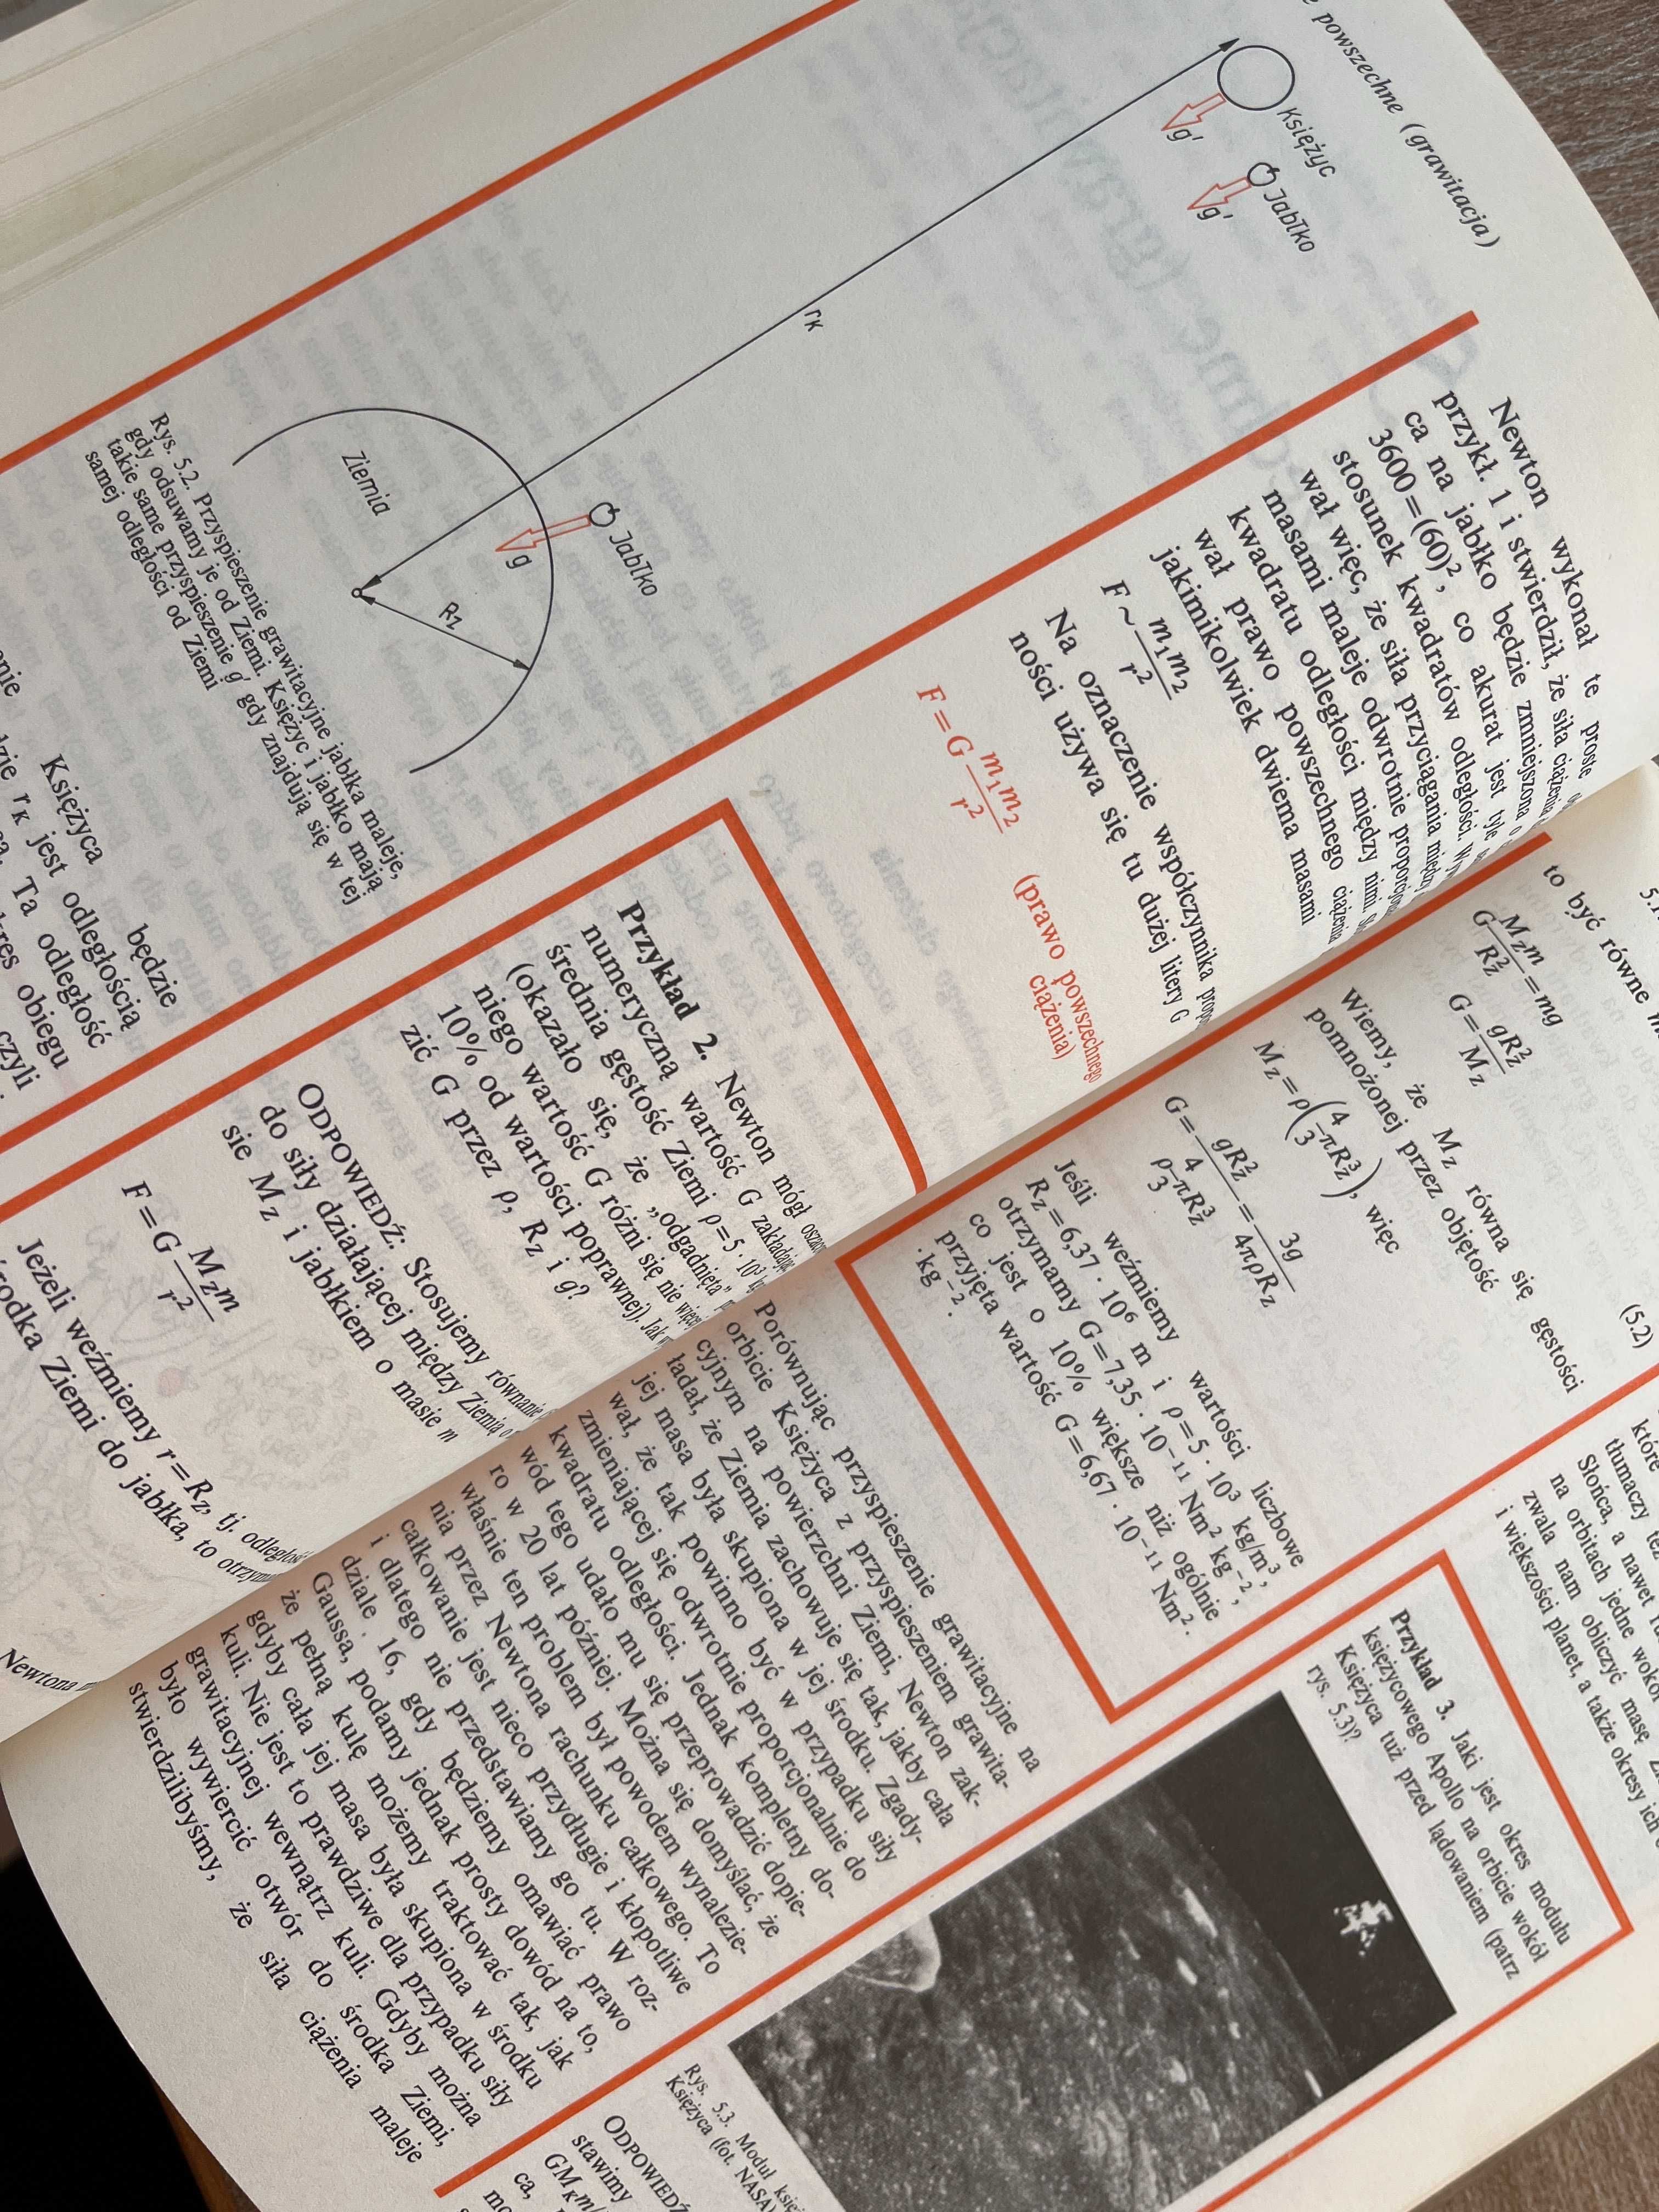 powszechne (grawitacja)
Księżyc
g'
Jabłko
g'
rK
Jabłko
g
Ziemia
RZ
Rys. 5.2. Przyspieszenie grawitacyjne jabłka maleje,
gdy odsuwamy je od Ziemi. Księżyc i jabłko mają
takie same przyspieszenie g' gdy znajdują się w tej
samej odległości od Ziemi
Księżyca będzie
rK jest odległością
Ta odległość
obiegu
czyli
Newton wykonał te proste
przykł. 1 i stwierdził, że siła ciążenia
ca na jabłko będzie zmniejszona o
3600 = (60)², co akurat jest tyle
stosunek kwadratów odległości.
wał więc, że siła przyciągania między
masami maleje odwrotnie
kwadratu odległości między nimi.
wał prawo powszechnego ciążenia
jakimikolwiek dwiema masami
F ~ m₁m₂/r²
Na oznaczenie współczynnika
ności używa się tu dużej litery G
F = G m₁m₂/r² (prawo powszechnego
ciążenia)
Przykład 2. Newton mógł
numeryczną wartość G zakładając
średnia gęstość Ziemi ρ = 5 · 10³
(okazało się, że „odgadnięta”
niego wartość G różni się nie więcej
10% od wartości poprawnej). Jak
zić G przez ρ, RZ i g?
ODPOWIEDŹ: Stosujemy równanie
do siły działającej między Ziemią o
sie MZ i jabłkiem o masie m
F = G MZm/r²
Jeżeli weźmiemy r = RZ, tj. odległość
środka Ziemi do jabłka, to
Newtona
to być równe
G MZm/RZ² = mg
G = gRZ²/MZ
(5.2)
Wiemy, że MZ równa się gęstości
pomnożonej przez objętość
MZ = ρ(4/3 πRZ³), więc
G = gRZ²/(ρ 4/3 πRZ³) = 3g/4πρRZ
Jeśli weźmiemy wartości liczbowe
RZ = 6,37 · 10⁶ m i ρ = 5 · 10³ kg/m³,
otrzymamy G = 7,35 · 10⁻¹¹ Nm² kg⁻²,
co jest o 10% większe niż ogólnie
przyjęta wartość G = 6,67 · 10⁻¹¹ Nm² ·
· kg⁻².
Porównując przyspieszenie grawitacyjne na
orbicie Księżyca z przyspieszeniem grawita-
cyjnym na powierzchni Ziemi, Newton zak-
ładał, że Ziemia zachowuje się tak, jakby cała
jej masa była skupiona w jej środku. Zgady-
wał, że tak powinno być w przypadku siły
zmieniającej się odwrotnie proporcjonalnie do
kwadratu odległości. Jednak kompletny do-
wód tego udało mu się przeprowadzić dopie-
ro w 20 lat później. Można się domyślać, że
właśnie ten problem był powodem wynalezie-
nia przez Newtona rachunku całkowego. To
całkowanie jest nieco przydługie i kłopotliwe
i dlatego nie przedstawiamy go tu. W roz-
dziale 16, gdy będziemy omawiać prawo
Gaussa, podamy jednak prosty dowód na to,
że pełną kulę możemy traktować tak, jak
gdyby cała jej masa była skupiona w środku
kuli. Nie jest to prawdziwe dla przypadku siły
grawitacyjnej wewnątrz kuli. Gdyby można
było wywiercić otwór do środka Ziemi,
stwierdzilibyśmy, że siła ciążenia maleje
które
tłumaczy też
Słońca, a nawet
na orbitach jedne wokół
zwala nam obliczyć masę
i większości planet, a także okresy ich
Przykład 3. Jaki jest okres modułu
księżycowego Apollo na orbicie wokół
Księżyca tuż przed lądowaniem (patrz
rys. 5.3)?
Rys. 5.3. Moduł
Księżyca (fot. NASA)
ODPOWIEDŹ
stawimy
GMKm/
ca,